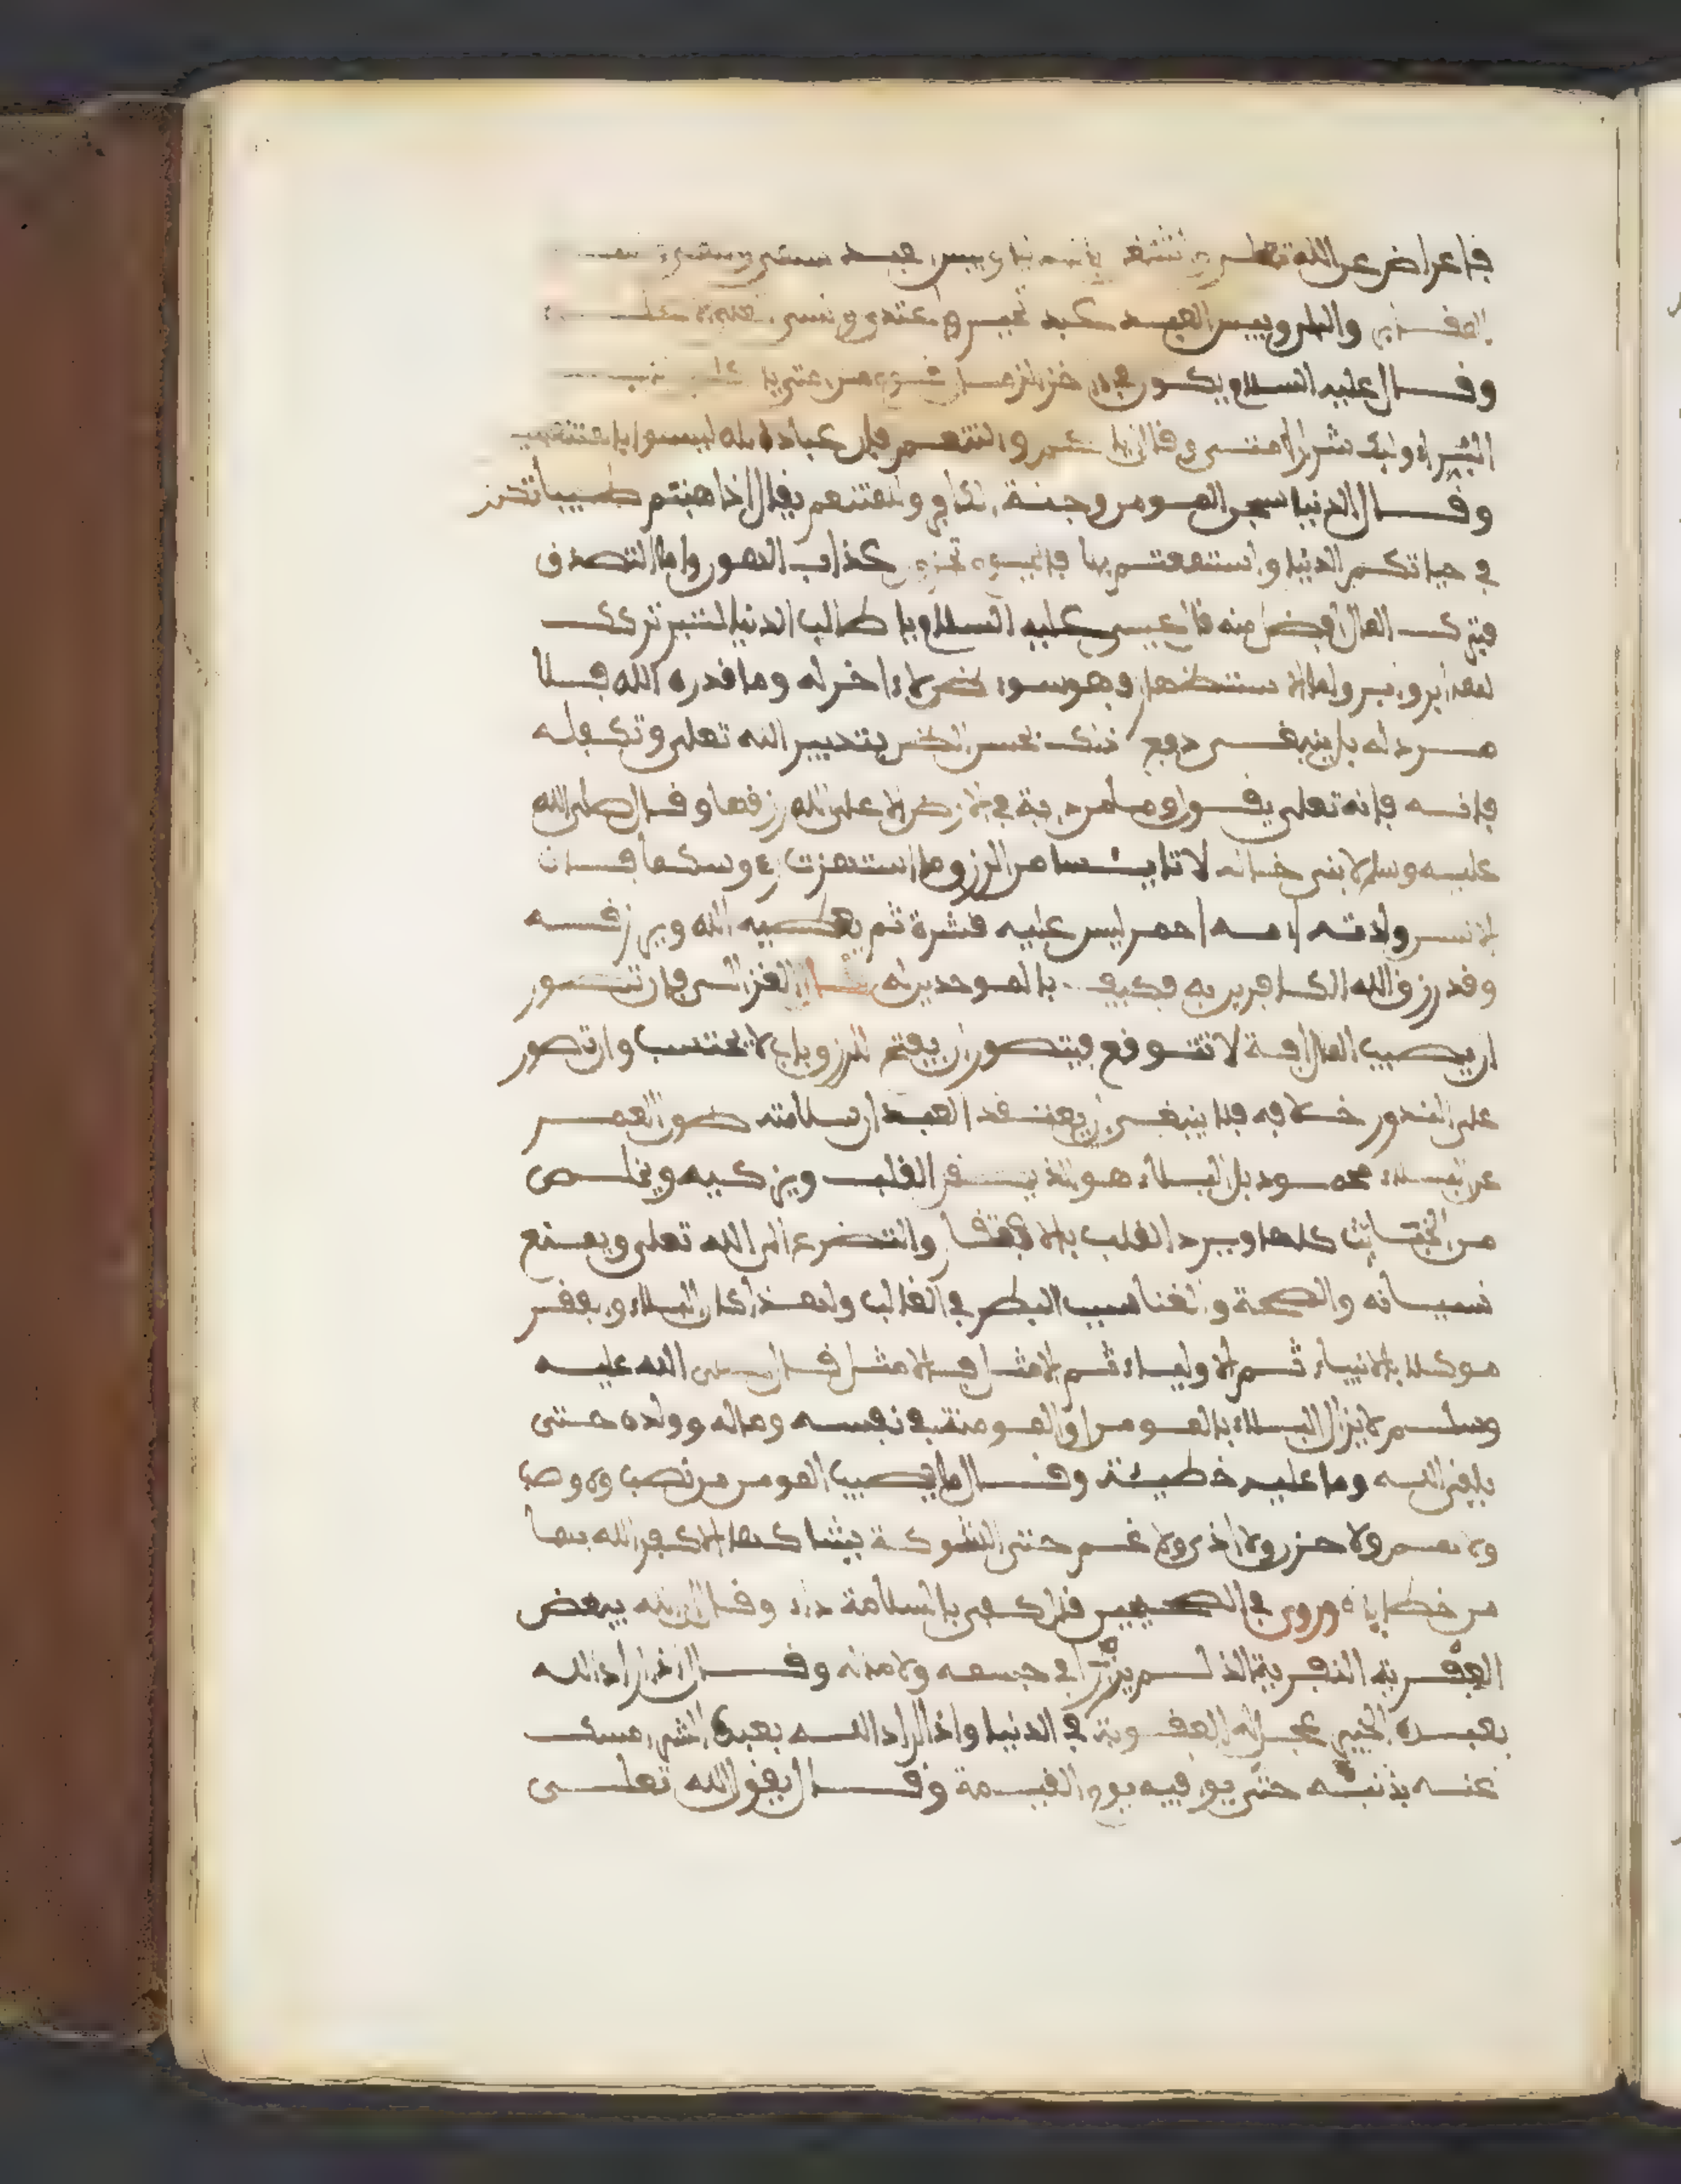 فاعراض عن الله تعلى
والبلى وبيس العبد عبد تجبر واعتدى ونسي
وقال عليه السلام يكون في اخر الزمان
الثياب اولئك شرار امتي وقال اياكم والتنعم فان عباد الله ليسوا بالمتنعمين
وقال الدنيا سجن المومن وجنة الكافر والمتنعم يقال اذهبتم طيباتكم
في حياتكم الدنيا واستمتعتم بها فاليوم تجزون عذاب الهون واما التصدق
فترك المال افضل منه قال عيسى عليه السلام يا طالب الدنيا لتبر تركك
لها ابر وابر واما الاستظهار وهو سوء ظن لا اخر له وما قدره الله فلا
مرد له بل ينبغي دفع ذلك بحسن الظن بتدبير الله تعلى وتكفله
فانه تعلى يقول وما من دابة في الارض الا على الله رزقها وقال صلى الله
عليه وسلم لابني خالد لا تايئسا من الرزق ما اهتزت رءوسكما فان
الانسان ولدته امه احمر ليس عليه قشرة ثم يعطيه الله ويرزقه
وقد رزق الله الكافرين به فكيف بالموحدين له قال الغزالي فان تتصور
ان يصيب المال افة لا تتوقع فيتصور ان يفتح الرزق باب لا يحتسب وان تصور
على الندور خلافه فلا ينبغي ان يعتقد العبد ان سلامته طول العمر
عن البلاء محمود بل البلاء هو الذ يصقل القلب ويزكيه ويخلص
من الخبائث كلها ويبرد القلب بالافتقار والتضرع الى الله تعلى ويمنع
نسيانه والصحة والغنا سبب البطر في الغالب ولهذا كان البلاء والفقر
موكلا بالانبياء ثم الاولياء ثم الامثل فالامثل قال صلى الله عليه
وسلم لا يزال البلاء بالمومن او المومنة في نفسه وماله وولده حتى
يلقى الله وما عليه خطيئة وقال ما يصيب المومن من نصب ولا وصب
ولا هم ولا حزن ولا اذى ولا غم حتى الشوكة يشاكها الا كفر الله بها
من خطاياه وروي في الصحيحين قال كفى بالسلامة داء وقال ان الله يبغض
العفرية النفرية الذ لم يرزأ في جسمه ولا ماله وقال اذا اراد الله
بعبده الخير عجل له العقوبة في الدنيا واذا اراد الله بعبده الشر امسك
عنه بذنبه حتى يوافيه يوم القيمة وقال يقول الله تعلى